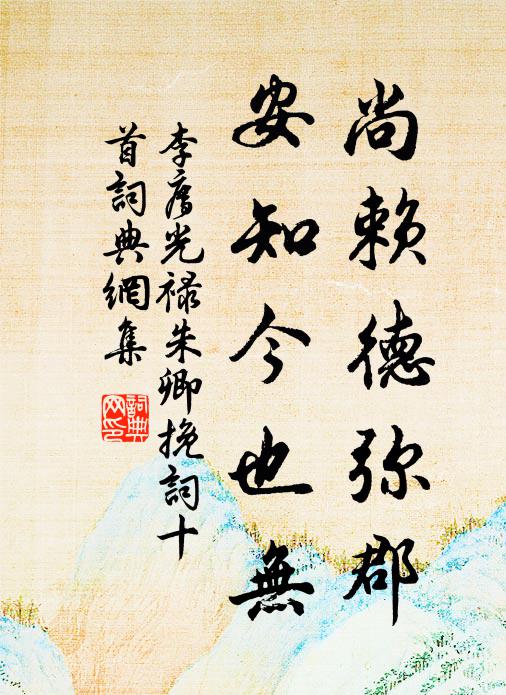 尚赖德弥郡
安知今也無
李膺光禄朱卿挽詞十
首詞典網集
詞典
网印